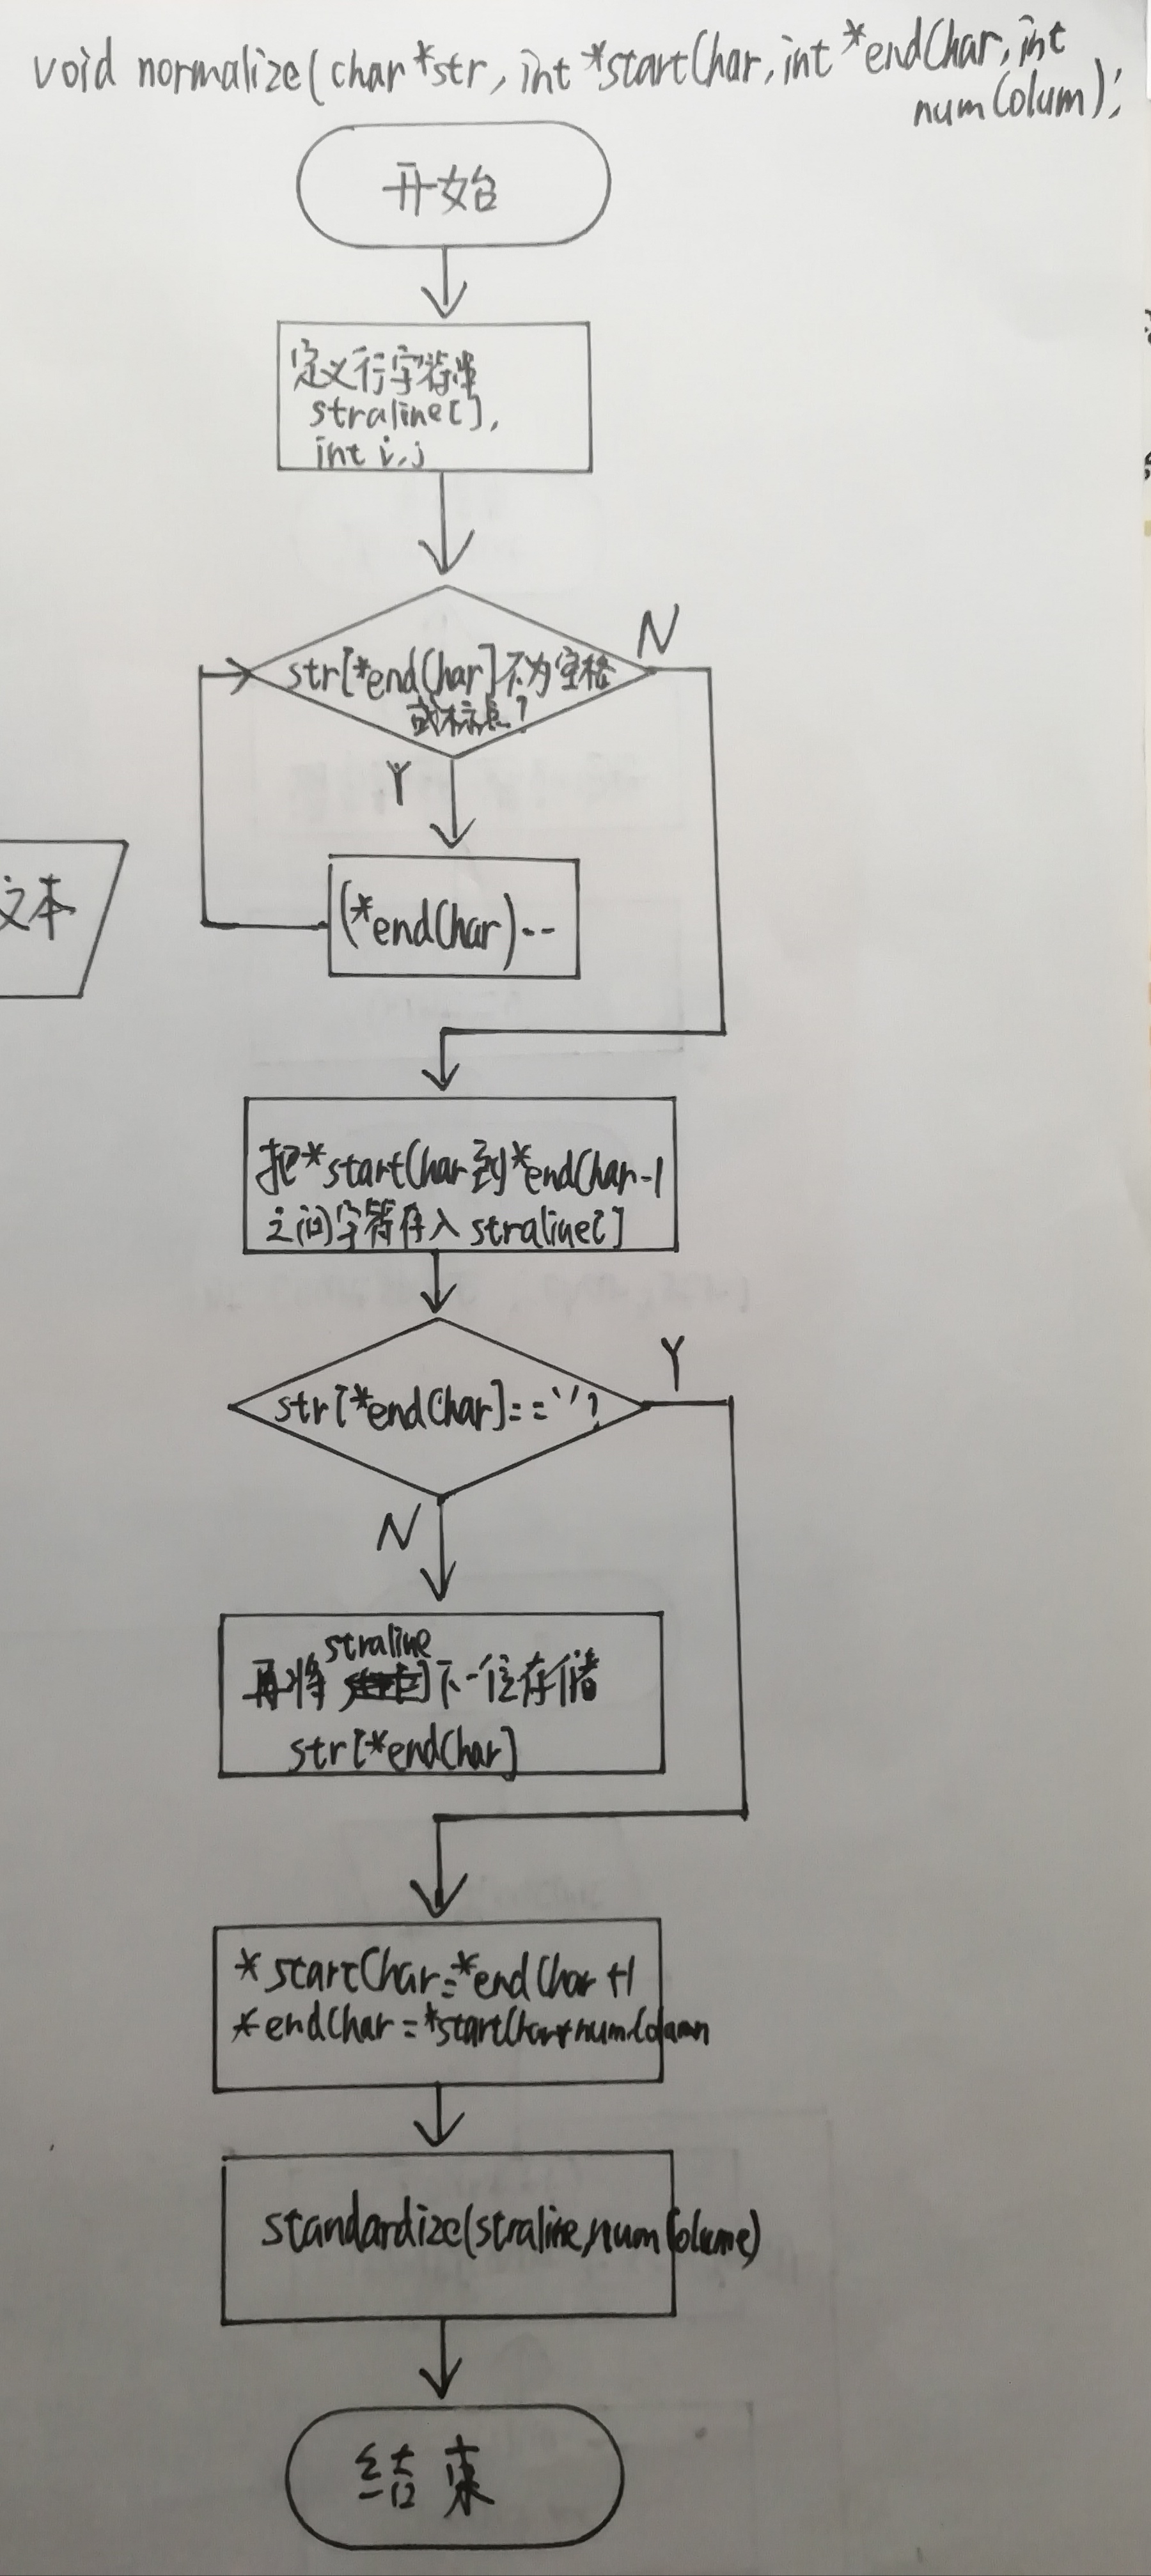 void normalize(char *str, int *startChar, int *endChar, int
numColum);
开始
定义行字符串
straline[],
int i,j
str[*endChar]不为空格
或标点?
N
Y
(*endChar)--
文本
把*startChar到*endChar-1
之间字符存入straline[]
str[*endChar]==' '?
Y
N
straline
再将 下一位存储
str[*endChar]
*startChar=*endChar+1
*endChar=*startChar+numColumn
standardize(straline,numColume)
结束